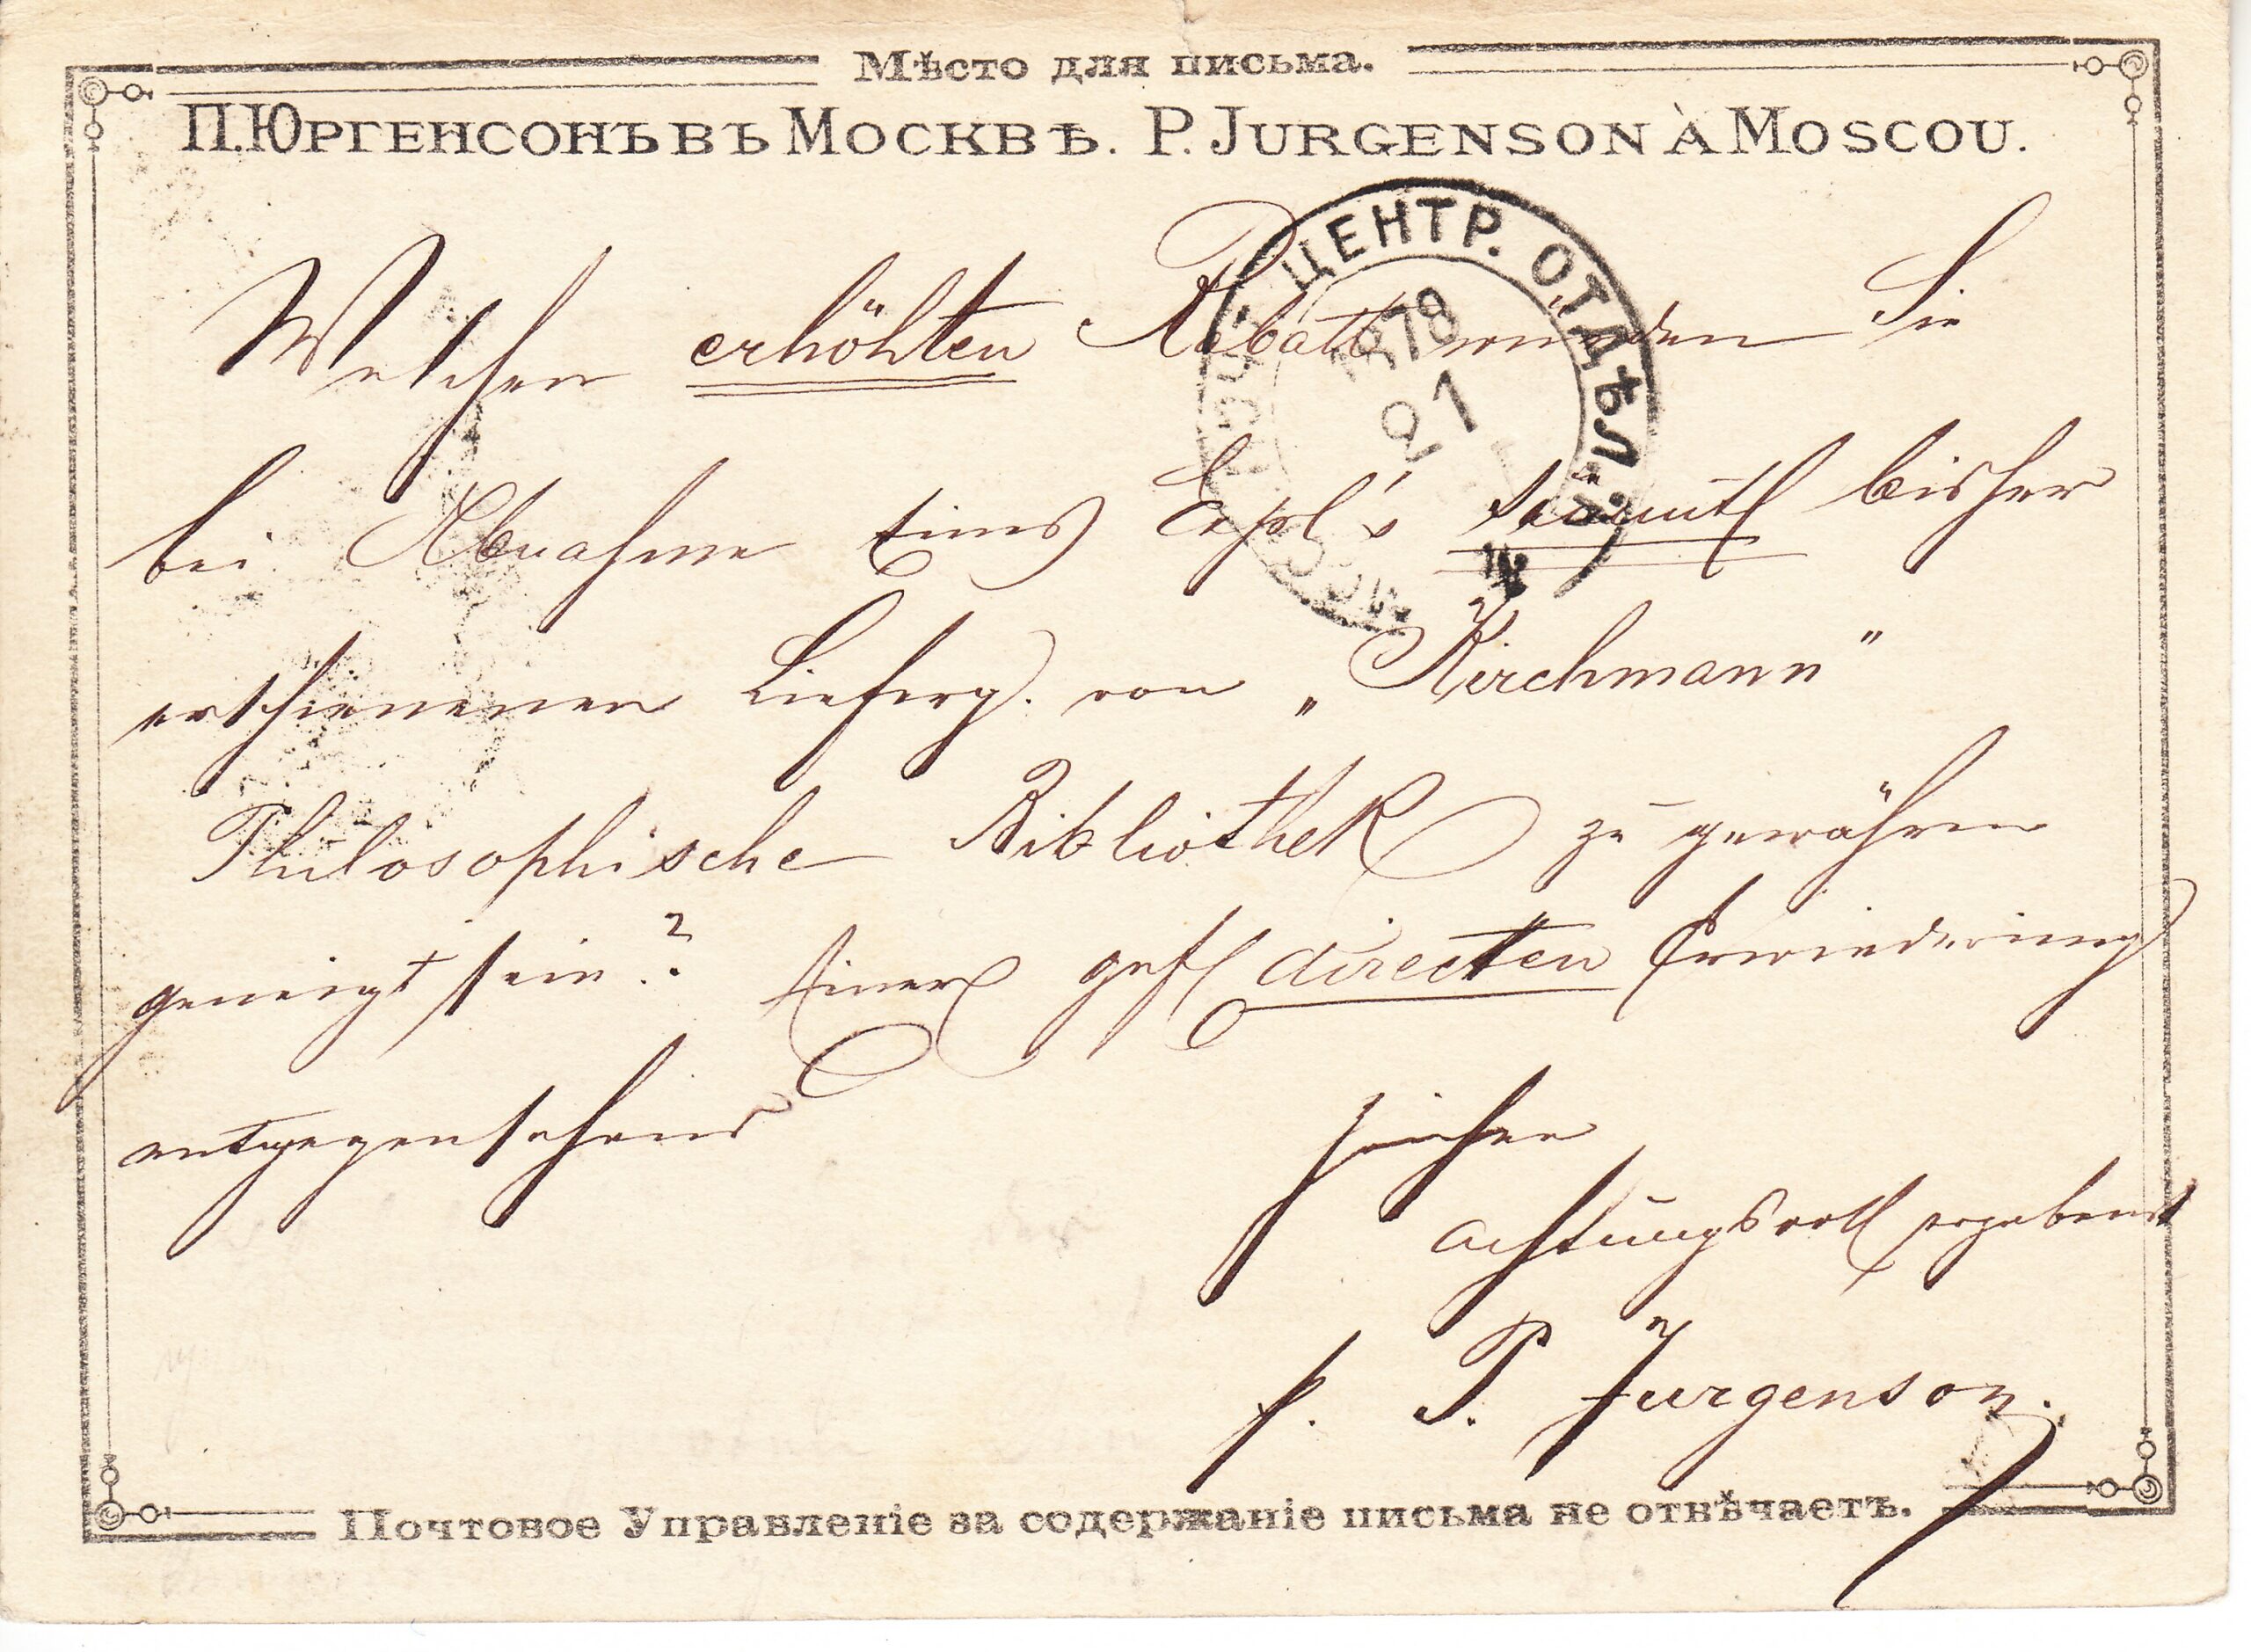 Мѣсто для письма.
П. Юргенсонъ въ Москвѣ. P. Jurgenson à Moscou.
ЦЕНТР. ОТДѢЛ.
1878
21
Welchen erhöhten Rabatt würden Sie
bei Abnahme eines Expl's sämmtl bisher
erschienenen Lieferg. von „Kirchmann"
Philosophische Bibliothek zu gewähren
geneigt sein? Einer gefl directen Erwiederung
entgegensehend zeichne
achtungsvoll ergebenst
p. P. Jurgenson.
Почтовое Управленіе за содержаніе письма не отвѣчаетъ.